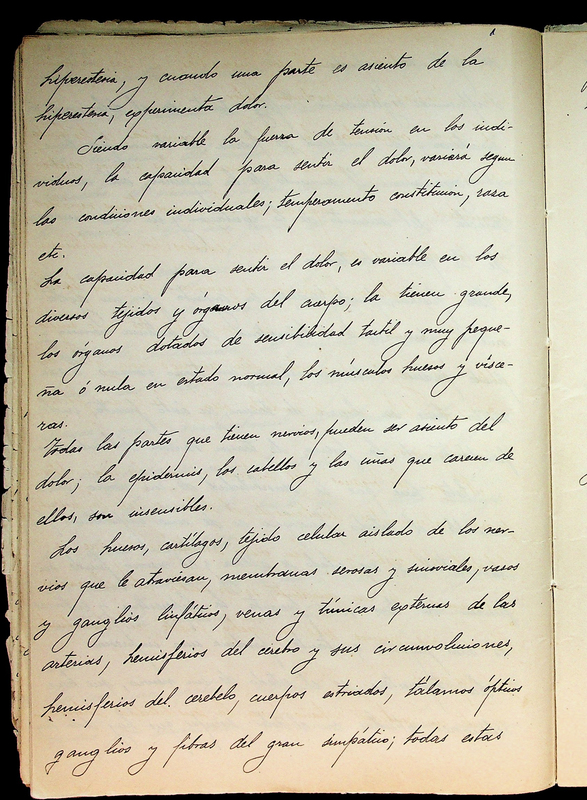 hiperestesia, y cuando una parte es asiento de la
hiperestesia, experimenta dolor.
Siendo variable la fuerza de tensión en los indi-
viduos, la capacidad para sentir el dolor, variará segun
las condiciones individuales; temperamento constitución, raza
etc.
La capacidad para sentir el dolor, es variable en los
diversos tejidos y órganos del cuerpo; la tienen grande,
los órganos dotados de sensibilidad táctil y muy peque-
ña ó nula en estado normal, los músculos huesos y vísce-
ras.
Todas las partes que tienen nervios, pueden ser asiento del
dolor; la epidermis, los cabellos y las uñas que carecen de
ellos, son insensibles.
Los huesos, cartílagos, tejido celular aislado de los ner-
vios que le atraviesan, membranas serosas y sinoviales, vasos
y ganglios linfáticos, venas y túnicas externas de las
arterias, hemisferios del cerebro y sus circunvoluciones,
hemisferios del cerebelo, cuerpos estriados, tálamos ópticos
ganglios y fibras del gran simpático; todas estas